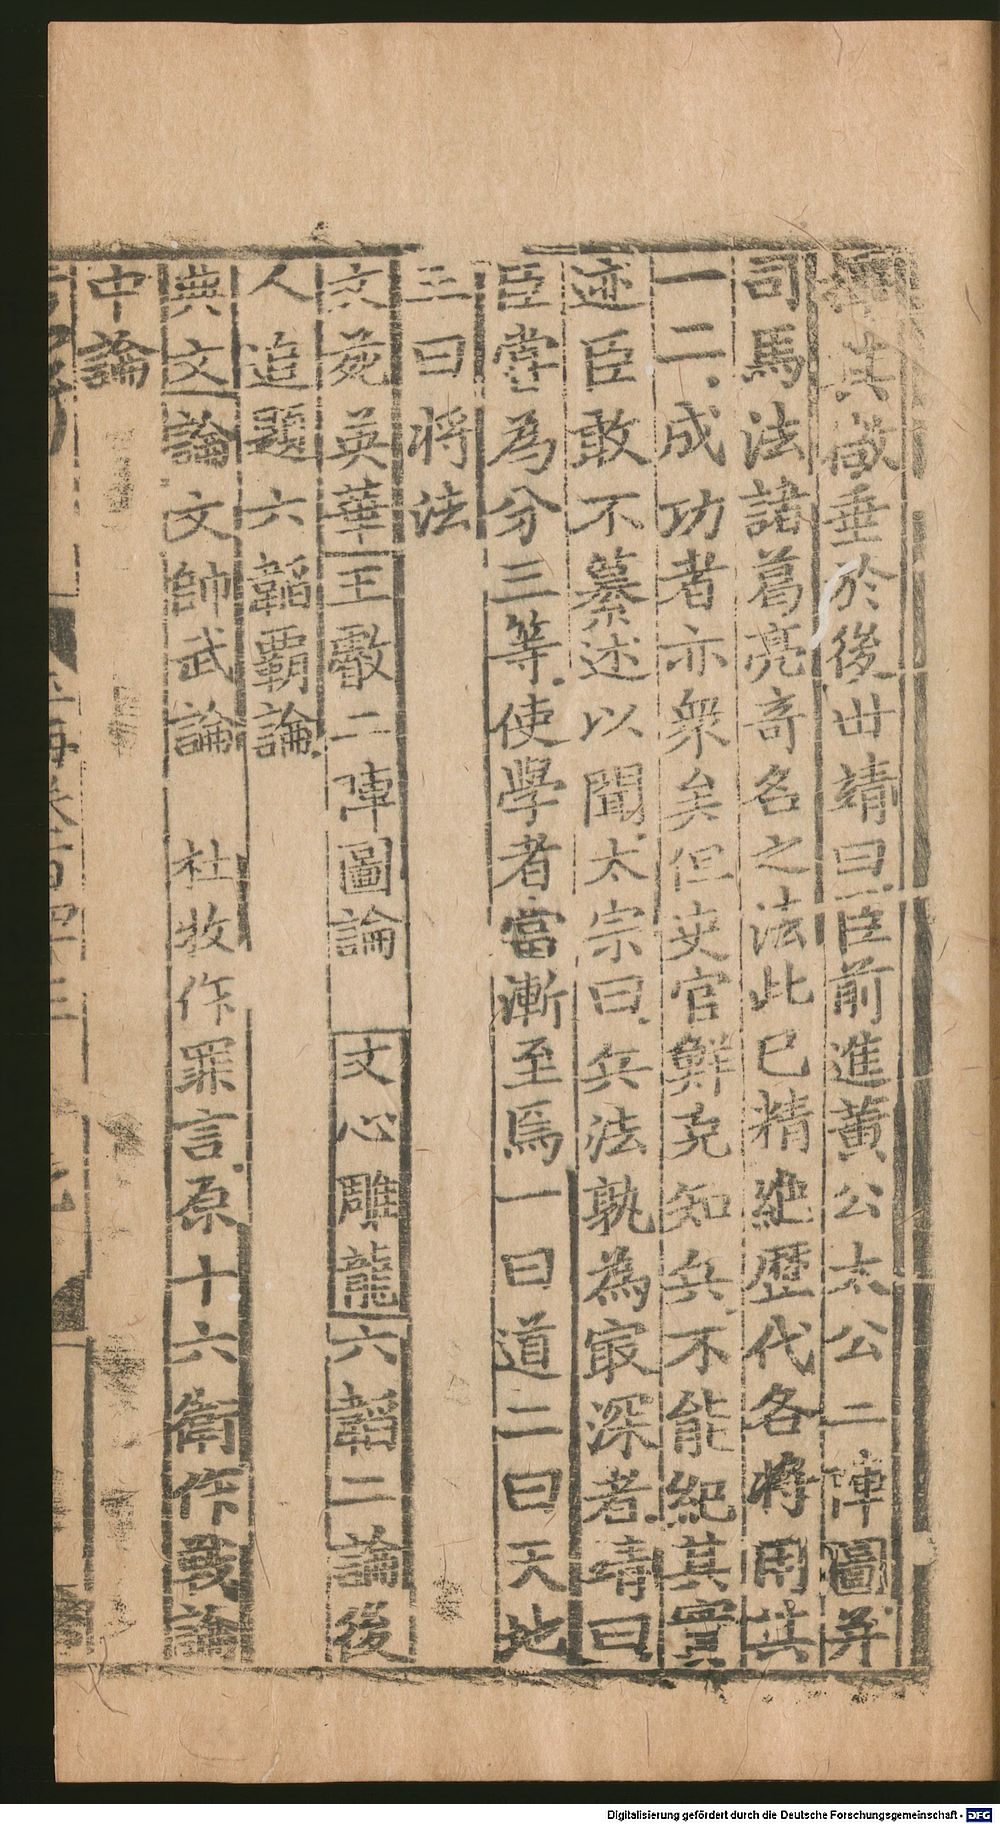 其箴垂於後世靖曰臣前進黃公太公二陣圖并
司馬法諸葛亮竒名之法此已精絕歷代各將用其
一二成功者亦衆矣但史官鮮克知兵不能紀其實
迹臣敢不纂述以聞太宗曰兵法孰為㝡深者靖曰
臣嘗為分三等使學者當漸至焉一曰道二曰天地
三曰将法
文苑英華王翰二陣圖論　文心雕龍六韜二論後
人追題六韜霸論
典文論文帥武論　杜牧作罪言原十六衛作戰論
中論
玉海卷一百四十三
Digitalisierung gefördert durch die Deutsche Forschungsgemeinschaft - DFG